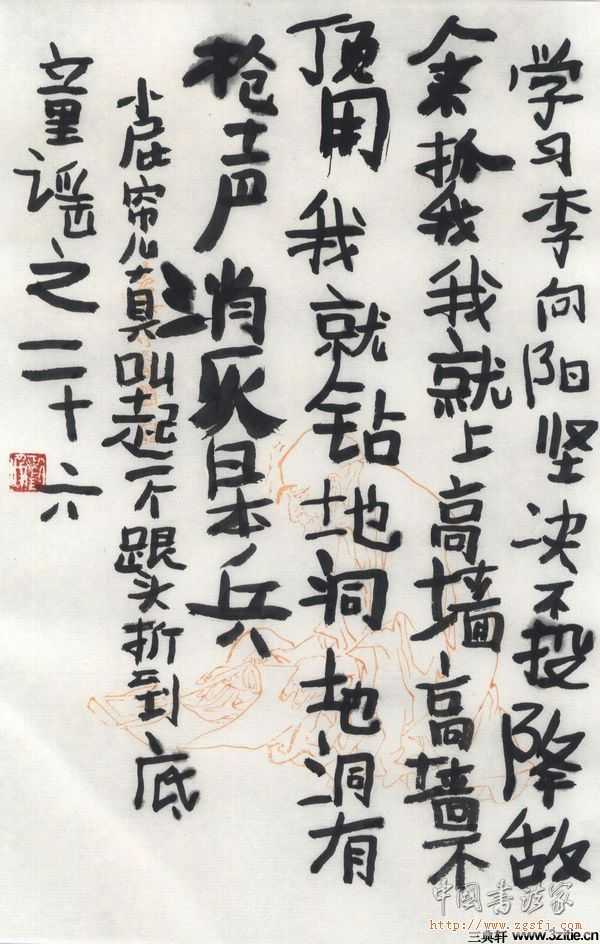 学习李向阳坚决不投降敌
人来抓我我就上高墙高墙不
顶用我就钻地洞地洞有
枪声消灭日本兵
小屁帘儿真叫起一个跟头折到底
童谣之三十六
中国书法家
http://www.zgsfj.com
三典轩 www.3zitie.cn